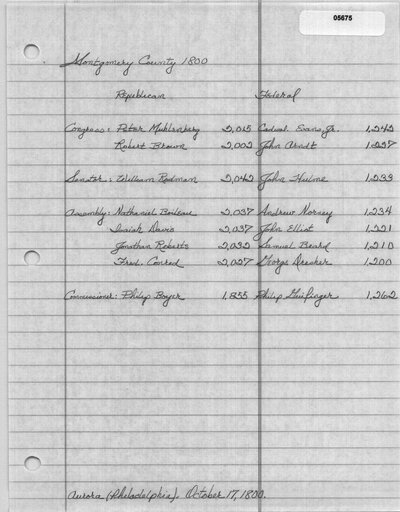 05675
Montgomery County 1800
Republican Federal
Congress: Peter Muhlenberg 2,015 Cadwal. Evans Jr. 1,242
Robert Brown 2,002 John Arndt 1,237
Senator: William Rodman 2,042 John Hulme 1,233
Assembly: Nathaniel Boileau 2,037 Andrew Norney 1,234
Isaiah Davis 2,037 John Elliot 1,221
Jonathan Roberts 2,032 Samuel Beard 1,210
Fred. Conrad 2,027 George Dresher 1,200
Commissioner: Philip Boyer 1,855 Philip 1,262
Aurora (Philadelphia). October 17, 1800.